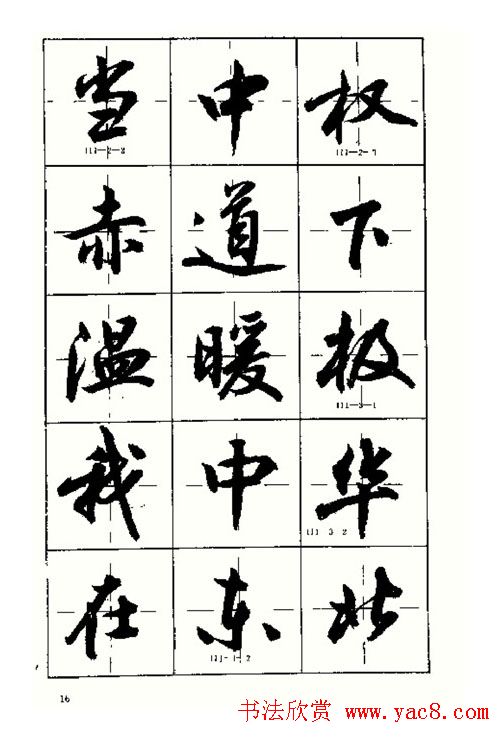 当中权
赤道下
温暖极
我中华
在东北
16
书法欣赏 www.yac8.com